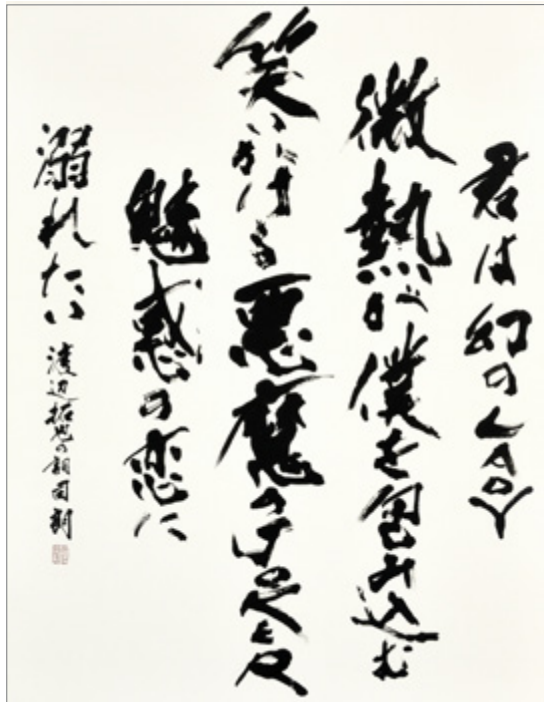 君は幻のLADY
微熱が僕を包み込む
笑いかける悪魔の
魅惑の恋に
溺れたい 渡辺拓也の詞